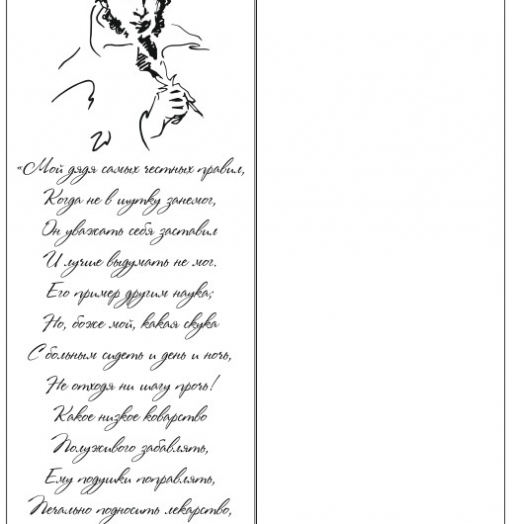 «Мой дядя самых честных правил,
Когда не в шутку занемог,
Он уважать себя заставил
И лучше выдумать не мог.
Его пример другим наука;
Но, боже мой, какая скука
С больным сидеть и день и ночь,
Не отходя ни шагу прочь!
Какое низкое коварство
Полуживого забавлять,
Ему подушки поправлять,
Печально подносить лекарство,